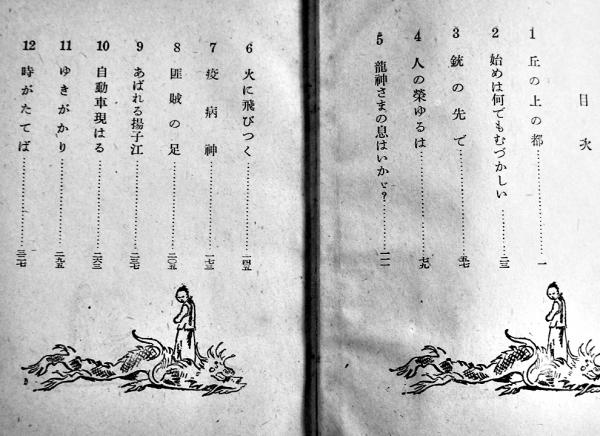 目次
1 丘の上の都………一
2 始めは何でもむづかしい………二三
3 銃の先で………五七
4 人の榮ゆるは………七九
5 龍神さまの息はいかゞ?………一一一
6 火に飛びつく………一四五
7 疫病神………一七三
8 匪賊の足………二〇五
9 あばれる揚子江………二三七
10 自動車現はる………二六三
11 ゆきがかり………二九五
12 時がたてば………三二七